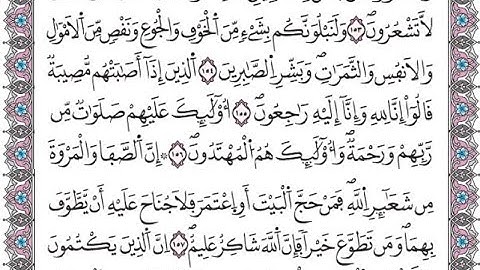 لَّا تَشْعُرُونَ ۝١٥٣ وَلَنَبْلُوَنَّكُم بِشَيْءٍ مِّنَ اَ۬لْخَوْفِ وَالْجُوعِ وَنَقْصٍ مِّنَ اَ۬لْأَمْوَٰلِ
وَالْأَنفُسِ وَالثَّمَرَٰتِ وَبَشِّرِ اِ۬لصَّٰبِرِينَ ۝١٥٤ اَ۬لذِينَ إِذَا أَصَٰبَتْهُم مُّصِيبَةٌ
قَالُوا إِنَّا لِلهِ وَإِنَّا إِلَيْهِ رَٰجِعُونَ ۝١٥٥ أُوْلَٰٓئِكَ عَلَيْهِمْ صَلَوَٰتٌ مِّن
رَّبِّهِمْ وَرَحْمَةٌ وَأُوْلَٰٓئِكَ هُمُ اُ۬لْمُهْتَدُونَ ۝١٥٦ إِنَّ اَ۬لصَّفَا وَالْمَرْوَةَ
مِن شَعَٰٓئِرِ اِ۬للَّهِ فَمَنْ حَجَّ اَ۬لْبَيْتَ أَوِ اِ۪عْتَمَرَ فَلَا جُنَاحَ عَلَيْهِ أَنْ يَّطَّوَّفَ
بِهِمَا وَمَن تَطَوَّعَ خَيْرًا فَإِنَّ اَ۬للَّهَ شَاكِرٌ عَلِيمٌ ۝١٥٧ إِنَّ اَ۬لذِينَ يَكْتُمُونَ